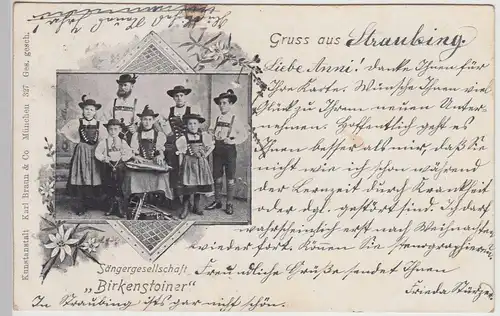 Gruss aus Straubing.
Liebe Anni! danke Ihnen für
Ihre Karte. Wünsche Ihnen viel
Glück zu Ihrem neuen Unter-
nehmen. Hoffentlich geht es
Ihnen besser als mir, daß Sie
nicht wie ich schon während
der Lernzeit durch Krankheit
oder dgl. gestört sind. Ich darf
wahrscheinlich erst nach Weihnachten
wieder fort. Können Sie stenographieren
Freundliche Grüße sendet Ihnen
Frieda
In Straubing ists gar nicht schön.
Sängergesellschaft
„Birkensteiner"
Kunstanstalt Karl Braun & Co. München 327 Ges. gesch.